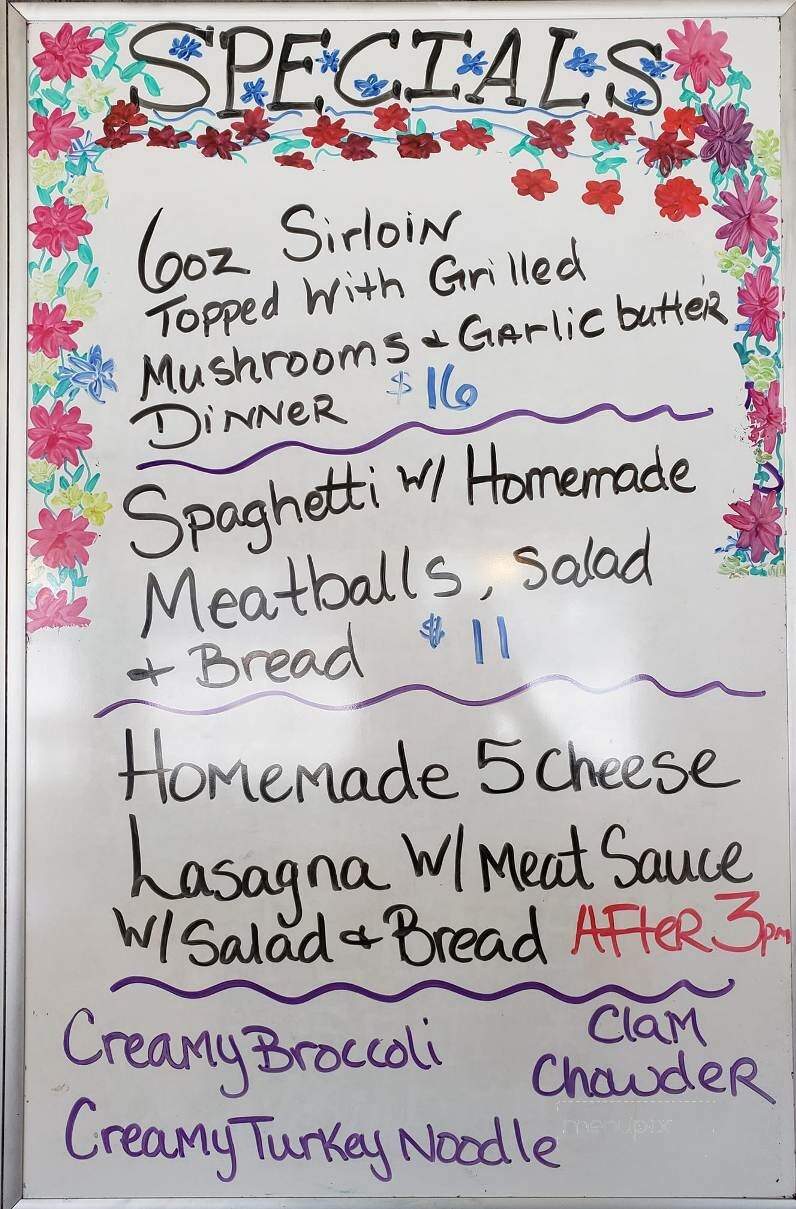 SPECIALS
6oz Sirloin
Topped With Grilled
Mushrooms & Garlic butter
Dinner $16
Spaghetti w/ Homemade
Meatballs, Salad
& Bread $11
Homemade 5 Cheese
Lasagna W/ Meat Sauce
W/ Salad & Bread After 3pm
Creamy Broccoli
Clam
Chowder
Creamy Turkey Noodle
menupix